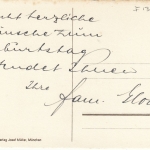 recht herzliche
Wünsche zum
Geburtstag
sendet Ihnen
Ihre Fam.
Verlag Josef Müller, München